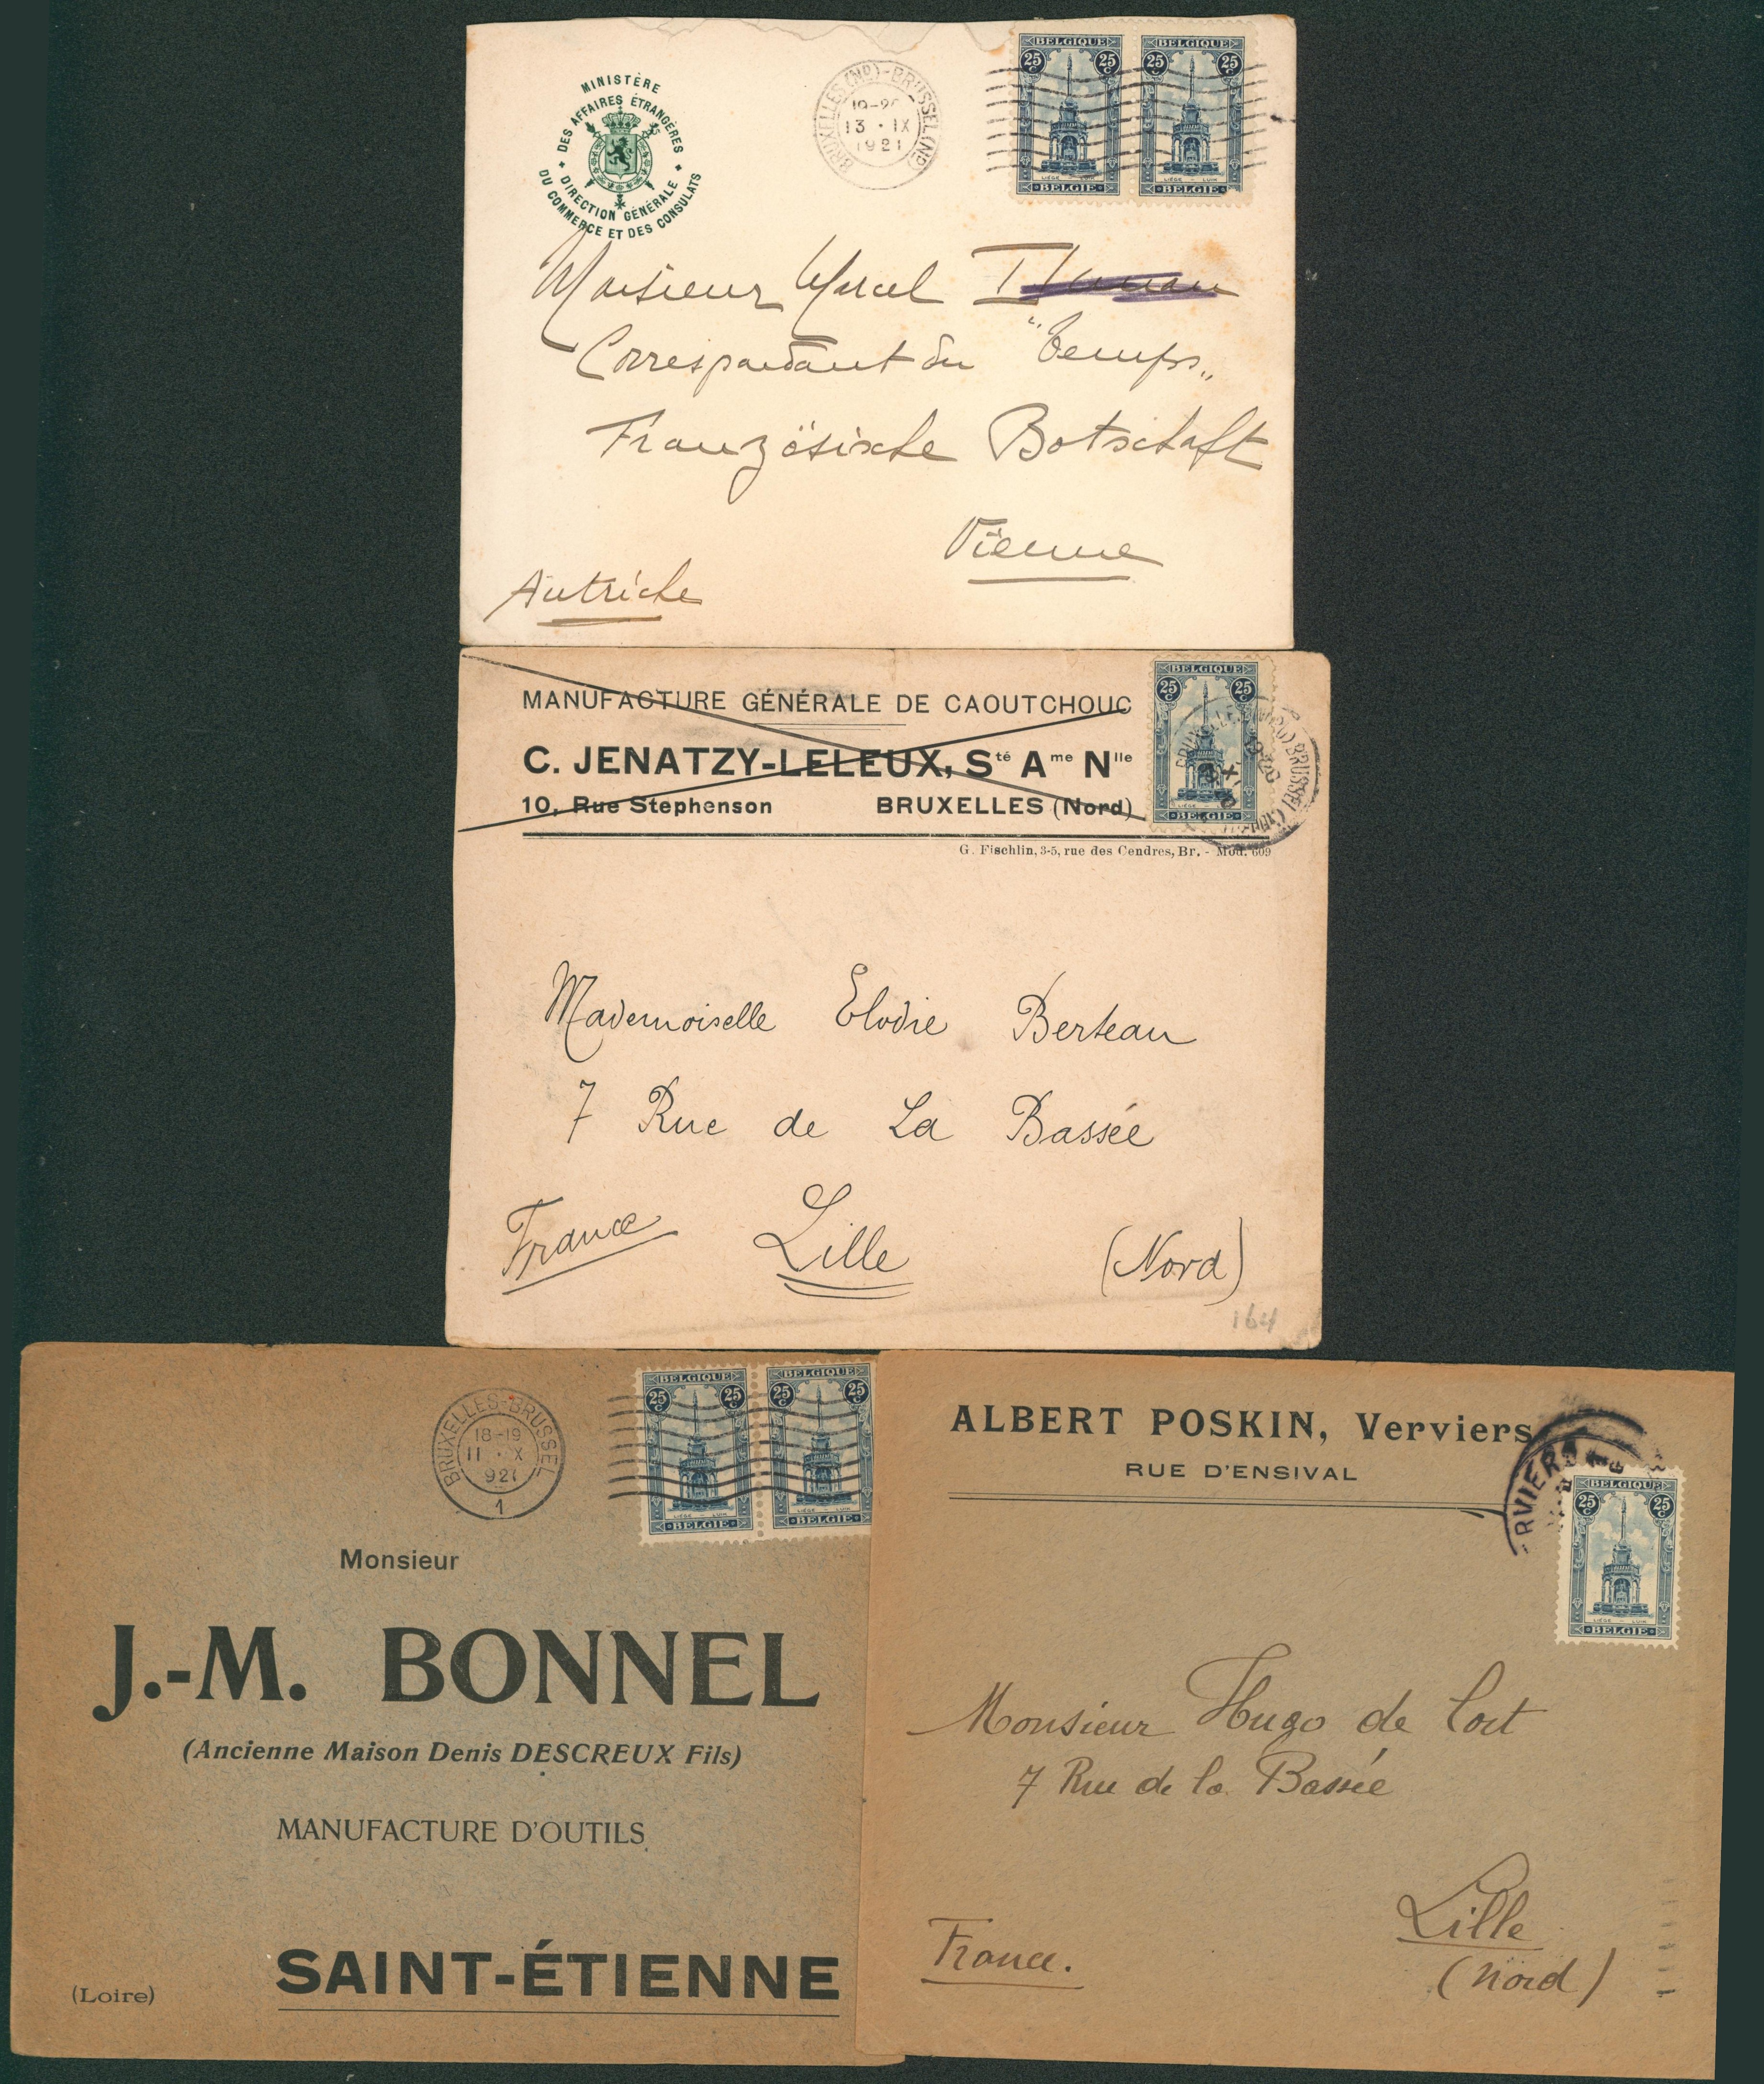 MINISTÈRE
DES AFFAIRES ÉTRANGÈRES
DIRECTION GÉNÉRALE
DU COMMERCE ET DES CONSULATS
BRUXELLES (ND)-BRUSSEL (ND)
13 · IX
1921
BELGIQUE BELGIQUE
25 C 25 C 25 C 25 C
LIÈGE - LUIK LIÈGE - LUIK
BELGIË BELGIË
Monsieur Marcel
Correspondant du "Temps"
Französische Botschaft
Vienne
Autriche
MANUFACTURE GÉNÉRALE DE CAOUTCHOUC
C. JENATZY-LELEUX, Sté Ame Nlle
10, Rue Stephenson BRUXELLES (Nord)
G. Fischlin, 3-5, rue des Cendres, Br. - Mod. 609
BELGIQUE
25 C 25 C
LIÈGE
BELGIË
Mademoiselle Elodie Berteau
7 Rue de La Bassée
France Lille (Nord)
164
BRUXELLES-BRUSSEL
18-19
11 · X
1921
1
BELGIQUE BELGIQUE
25 C 25 C 25 C 25 C
LIÈGE - LUIK LIÈGE - LUIK
BELGIË BELGIË
Monsieur
J.-M. BONNEL
(Ancienne Maison Denis DESCREUX Fils)
MANUFACTURE D'OUTILS
(Loire) SAINT-ÉTIENNE
ALBERT POSKIN, Verviers
RUE D'ENSIVAL
RVIERS
BELGIQUE
25 C 25 C
LIÈGE - LUIK
BELGIË
Monsieur Hugo de
7 Rue de la Bassée
Lille
France. (Nord)